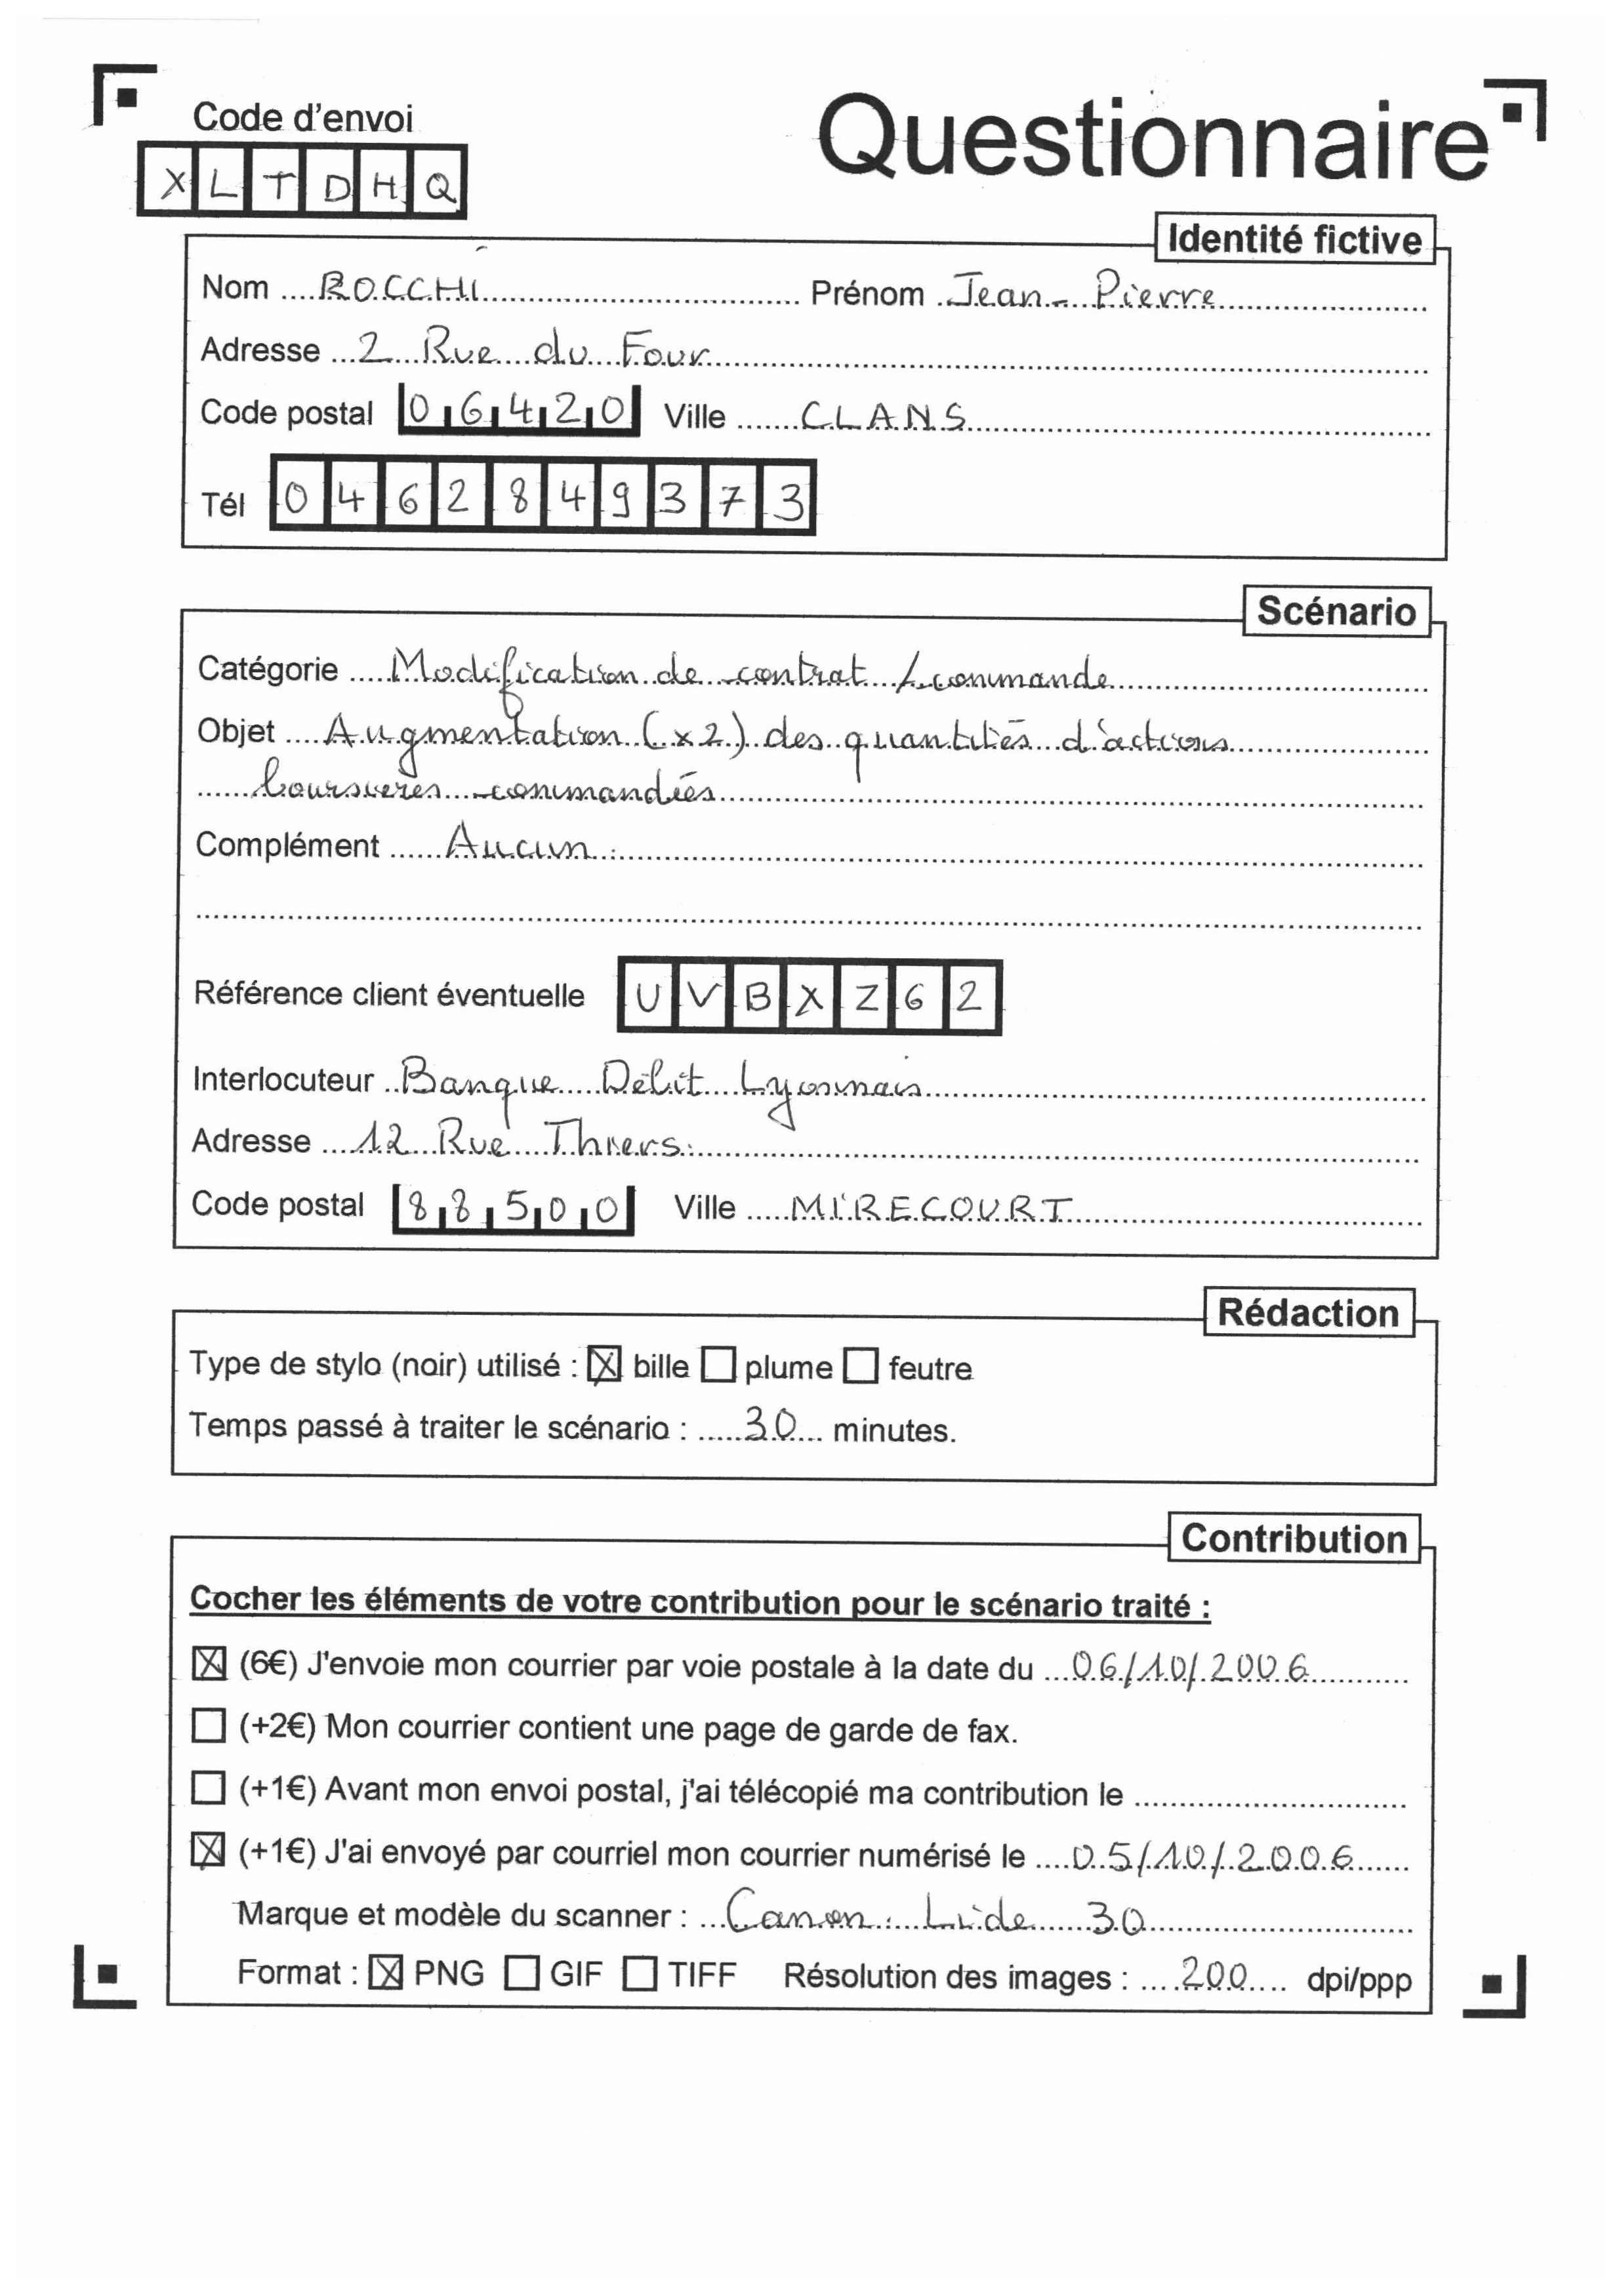 Code d'envoi
Questionnaire
X L T D H Q
Identité fictive
Nom ROCCHI Prénom Jean-Pierre
Adresse 2 Rue du Four
Code postal 06420 Ville CLANS
Tél 0462849373
Scénario
Catégorie Modification de contrat / commande
Objet Augmentation (x2) des quantités d'actions
boursières commandées
Complément Aucun.
Référence client éventuelle UVBXZ62
Interlocuteur Banque Débit Lyonnais
Adresse 12 Rue Thiers.
Code postal 88500 Ville MIRECOURT
Rédaction
Type de stylo (noir) utilisé : ☒ bille ☐ plume ☐ feutre
Temps passé à traiter le scénario : 30 minutes.
Contribution
Cocher les éléments de votre contribution pour le scénario traité :
☒ (6€) J'envoie mon courrier par voie postale à la date du 06/10/2006
☐ (+2€) Mon courrier contient une page de garde de fax.
☐ (+1€) Avant mon envoi postal, j'ai télécopié ma contribution le
☒ (+1€) J'ai envoyé par courriel mon courrier numérisé le 05/10/2006
Marque et modèle du scanner : Canon Lide 30
Format : ☒ PNG ☐ GIF ☐ TIFF Résolution des images : 200 dpi/ppp